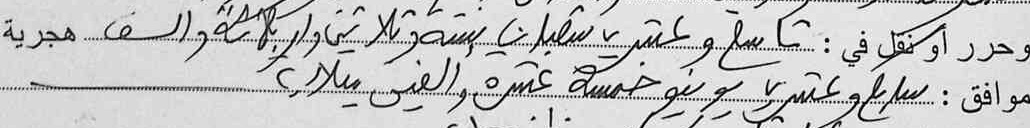 وحرر أو نقل في : تاسع وعشرين شعبان ستة وثلاثين وأربعمائة وألف هجرية
موافق : سابع وعشرين يونيو خمسة عشرة وألفين ميلادي